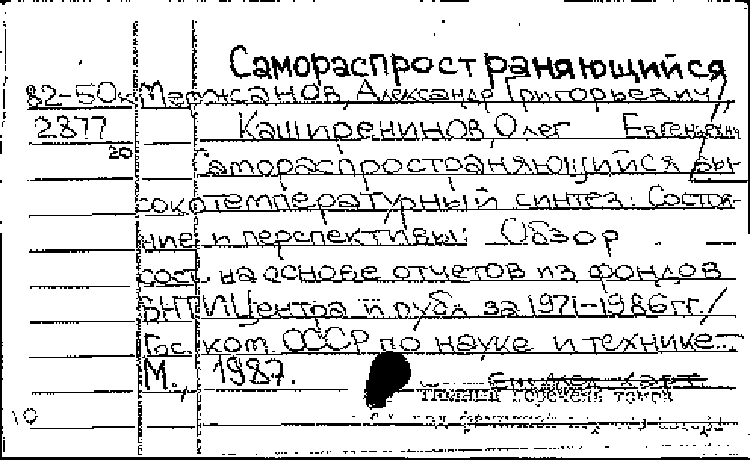 Самораспространяющийся
82-50к Мержанов, Александр Григорьевич,
2877 Каширенинов Олег Евгеньевич
20
Самораспространяющийся вы-
сокотемпературный синтез: Состоя-
ние и перспективы: Обзор
сост. на основе отчетов из фондов
ВНТИЦентра и публ. за 1971-1986гг. /
Гос. ком. СССР по науке и технике...
М., 1987.
10